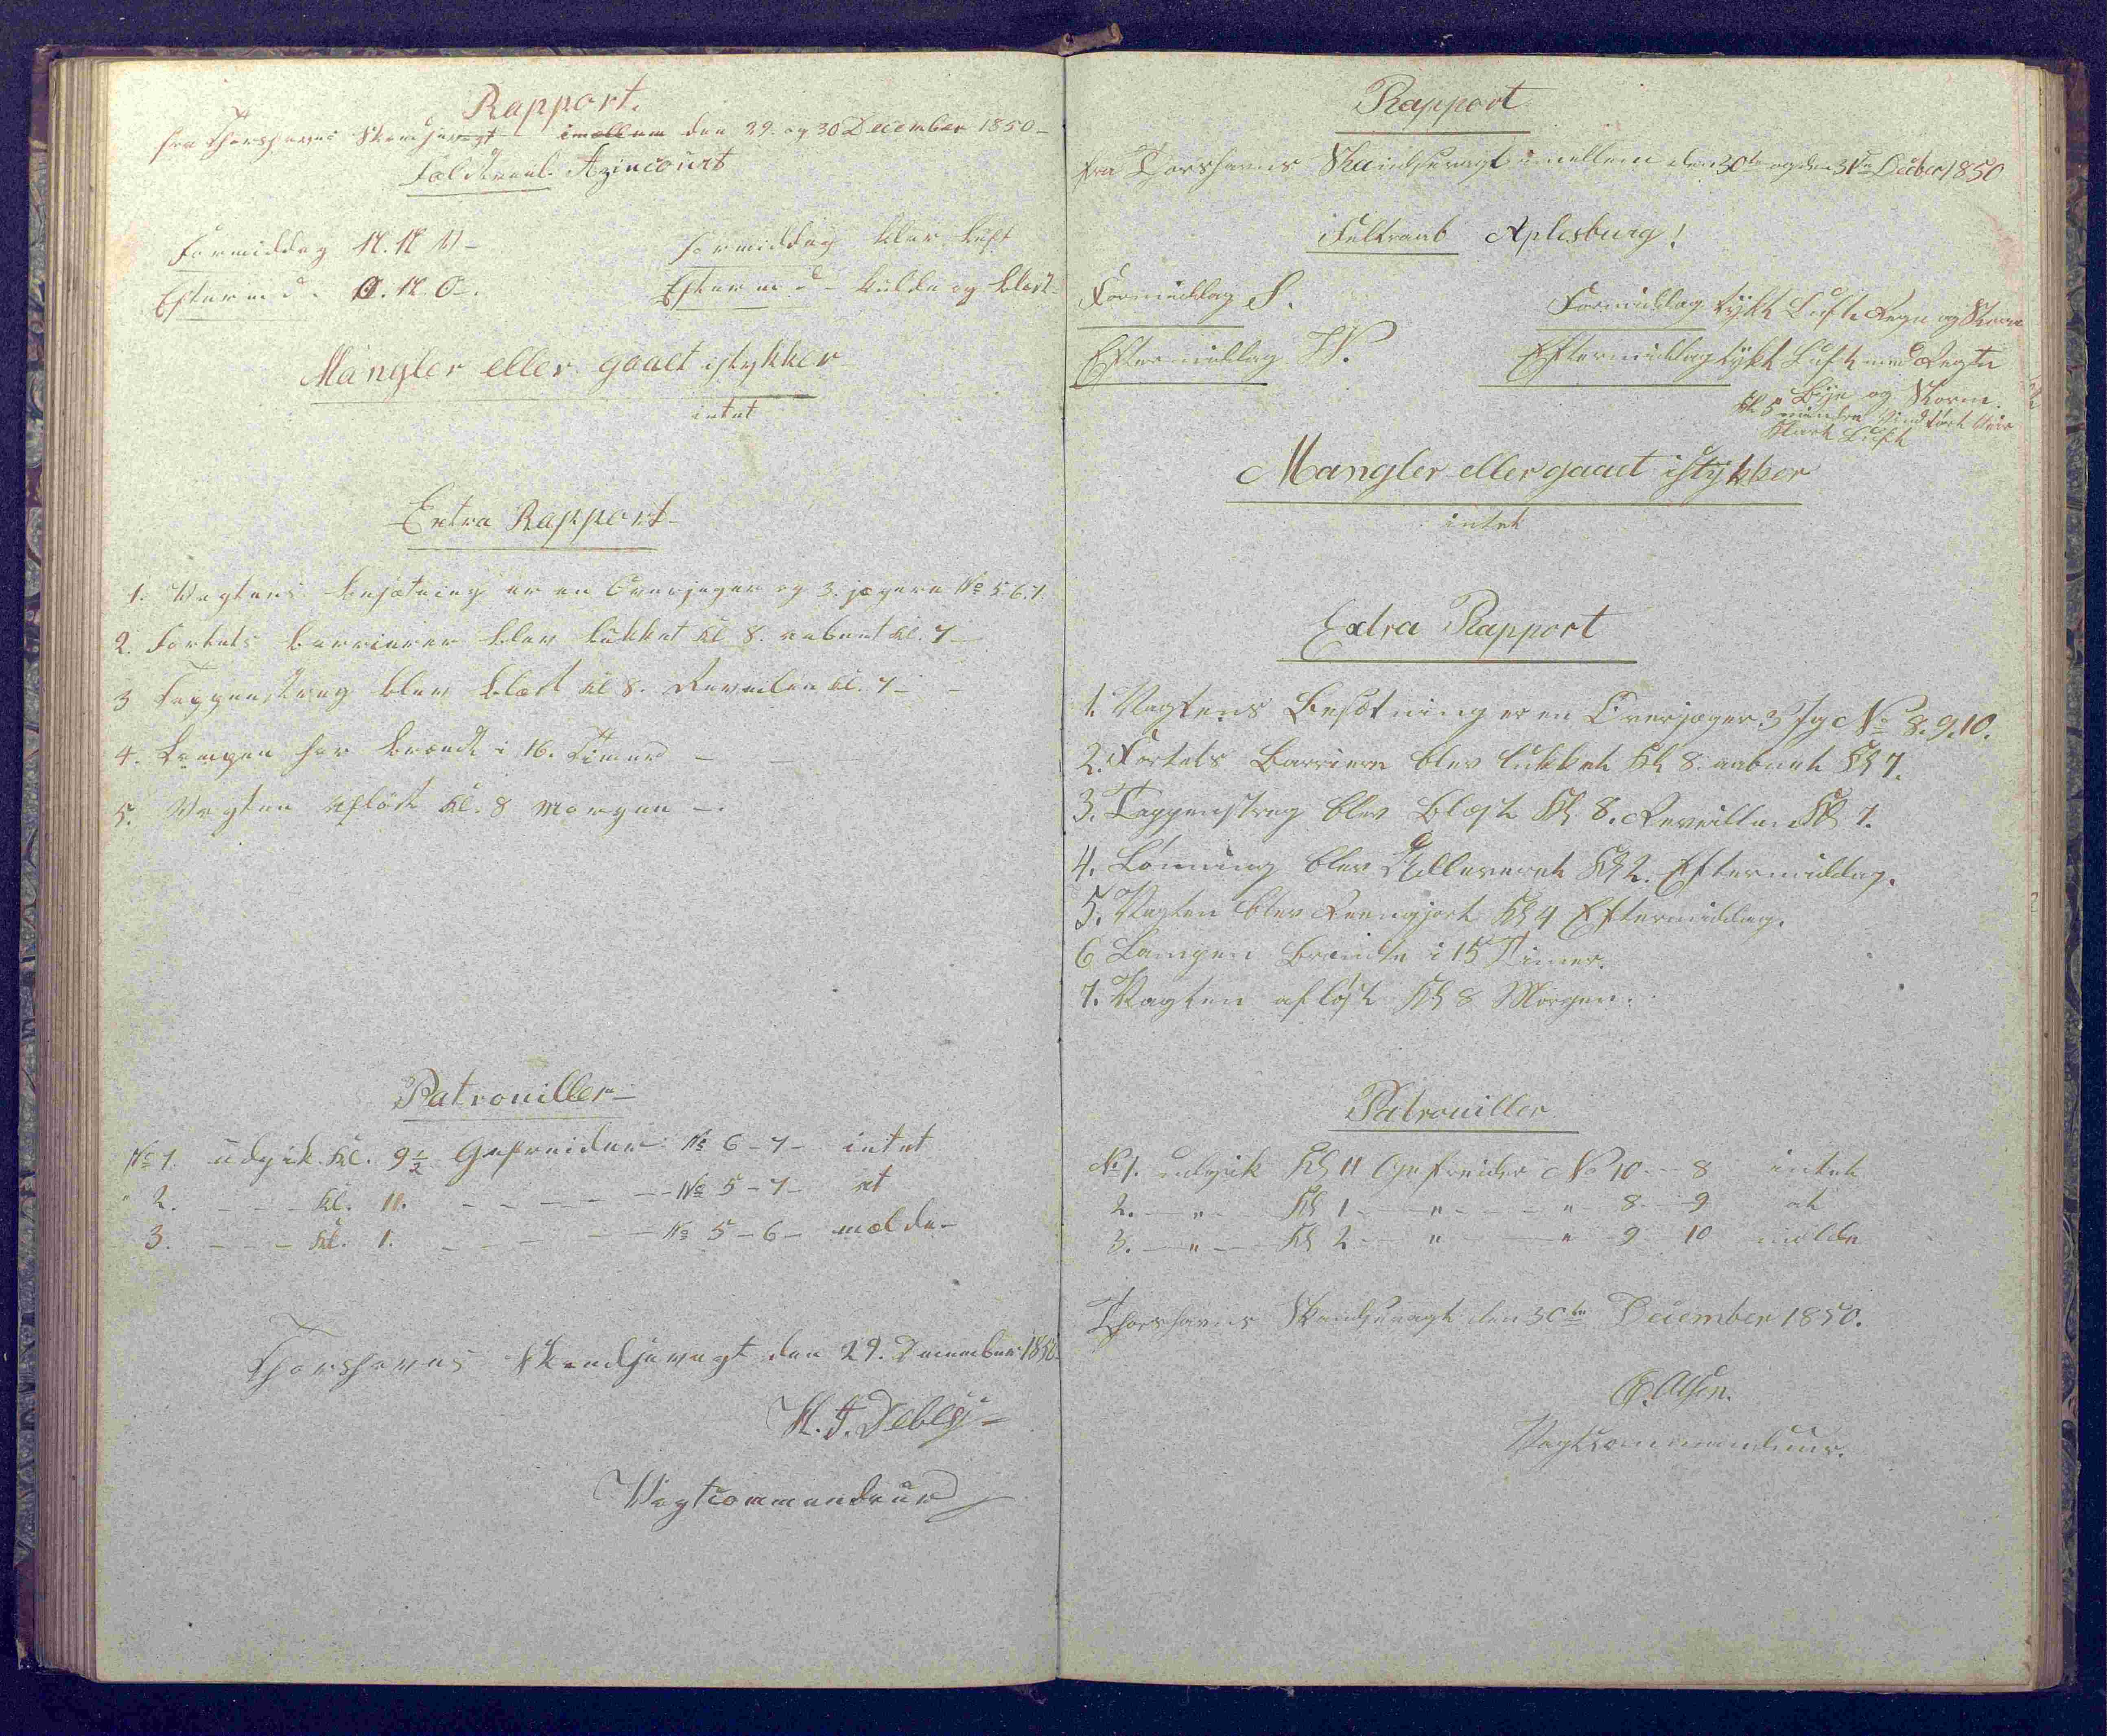 Rapport.
fra Thorshavns Skandsevagt imellem den 29. og 30 December 1850
Feldtraab Azincourt
Formiddag N. N. V
Formiddag klar Luft
Efterm d. O. N. O.
Efterm d - kulde og blæst
Mangler eller gaaet istykker
intet
Extra Rapport
1. Vagtens besætning er en Overjæger og 3. jægere No 5.6.7.
2. Fortets barrierer blev lukket kl 8. aabnet kl. 7
3 Tappenstreg blev blæst kl 8. Reveilen kl. 7
4. Lampen har brændt i 16. Timer
5. Vagten Afløst kl. 8 Morgen
Patrouiller
No 1. udgik kl. 9½ Gefreider No 6-7- intet
" 2. - - - kl. 11. - - - - No 5-7- at
3. - - - kl. 1. - - - - No 5-6- melde
Thorshavns Skandsevagt den 29. December 1850.
H. J. Debes
Vagtcommandeur
Rapport
fra Thorshavns Skandsevagt imellem den 30te og den 31te Decber 1850
Feltraab Aplesburg!
Formiddag S.
Formiddag tykt Luft Regn og Storm
Eftermiddag V.
Eftermiddag tykt Luft med Regn
Byje og Storm.
Kl 5 mindre Vind tørt Veir
Klart Luft
Mangler eller gaaet istykker
intet
Extra Rapport
1. Vagtens Besætning er en Overjæger 3 Jg No 8.9.10.
2. Fortets Barriere blev lukket Kl 8. aabnet Kl 7.
3. Tappenstreg blev Blæst Kl 8. Reveillen Kl 7.
4. Lønning blev Udleveret Kl 2. Eftermiddag.
5. Vagten blev Reengjort Kl 4 Eftermiddag.
6 Lampen Brændte i 15 Timer.
7. Vagten afløst Kl 8 Morgen.
Patrouiller
No 1. udgik Kl 11 Gefreider No 10 - - 8 intet
2. - " - Kl 1 - - " - - - " - 8 - - 9 at
3. - " - Kl 2 - - " - - - " 9 10 melde
Thorshavns Skandsevagt den 30te December 1850.
Olsen.
Vagtcommandeur.